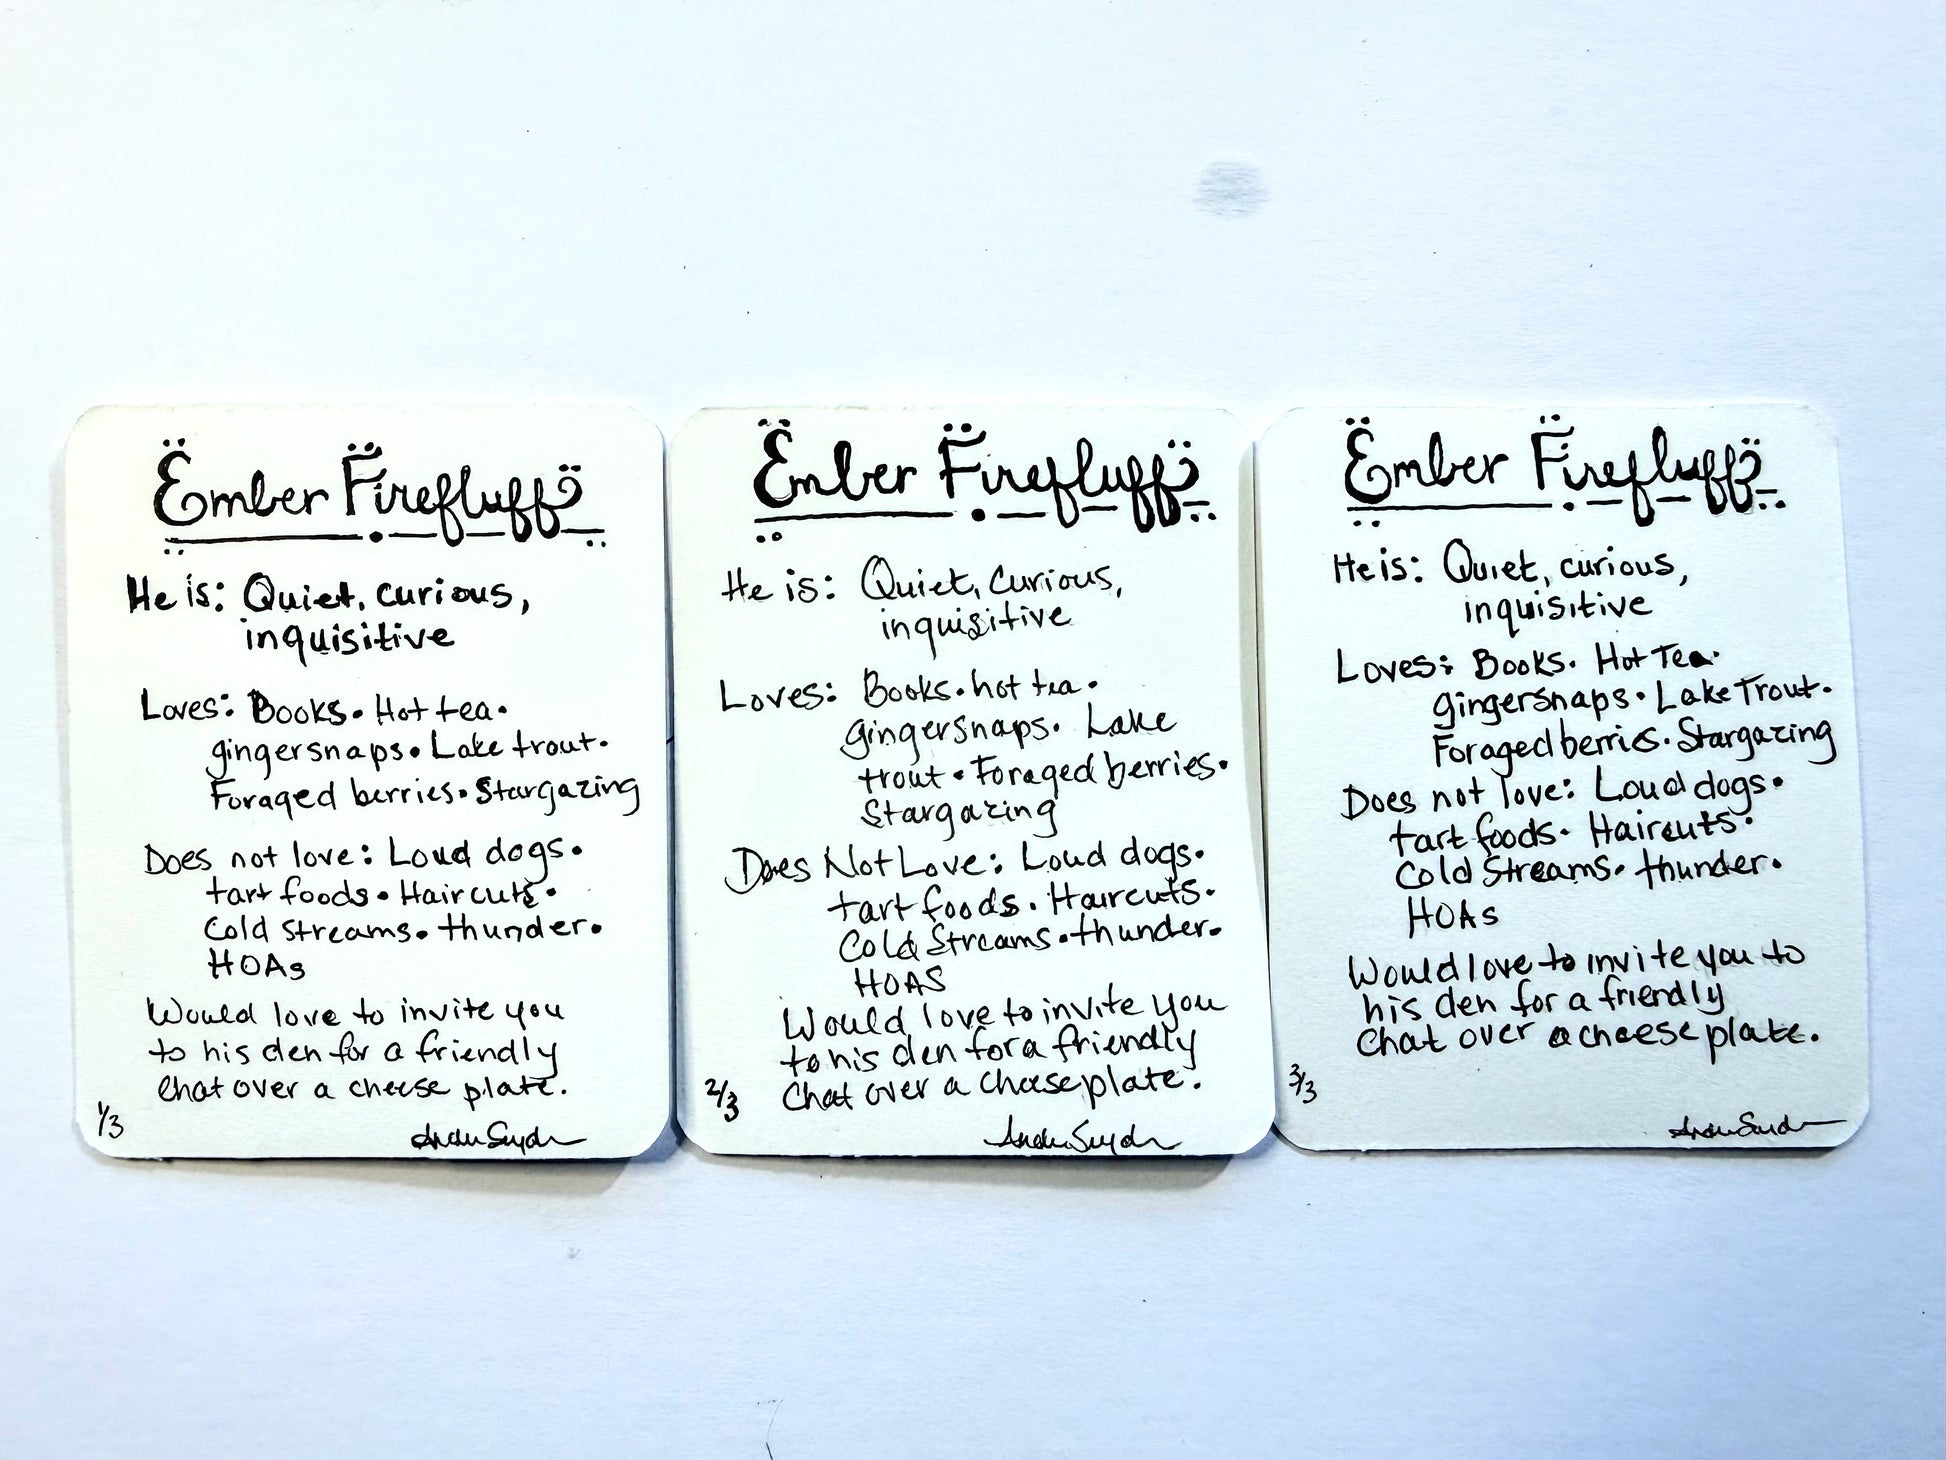 Ember Firefluff
He is: Quiet, curious,
inquisitive
Loves: Books. Hot tea.
gingersnaps. Lake trout.
Foraged berries. Stargazing
Does not love: Loud dogs.
tart foods. Haircuts.
Cold streams. thunder.
HOAs
Would love to invite you
to his den for a friendly
Chat over a cheese plate.
1/3
Ember Firefluff
He is: Quiet, Curious,
inquisitive
Loves: Books. hot tea.
gingersnaps. Lake
trout. Foraged berries.
Stargazing
Does Not Love: Loud dogs.
tart foods. Haircuts.
Cold Streams. thunder.
HOAS
Would love to invite you
to his den for a friendly
Chat over a cheese plate.
2/3
Ember Firefluff
He is: Quiet, curious,
inquisitive
Loves: Books. Hot Tea.
gingersnaps. Lake Trout.
Foraged berries. Stargazing
Does not love: Loud dogs.
tart foods. Haircuts.
Cold Streams. thunder.
HOAs
Would love to invite you to
his den for a friendly
Chat over a cheese plate.
3/3